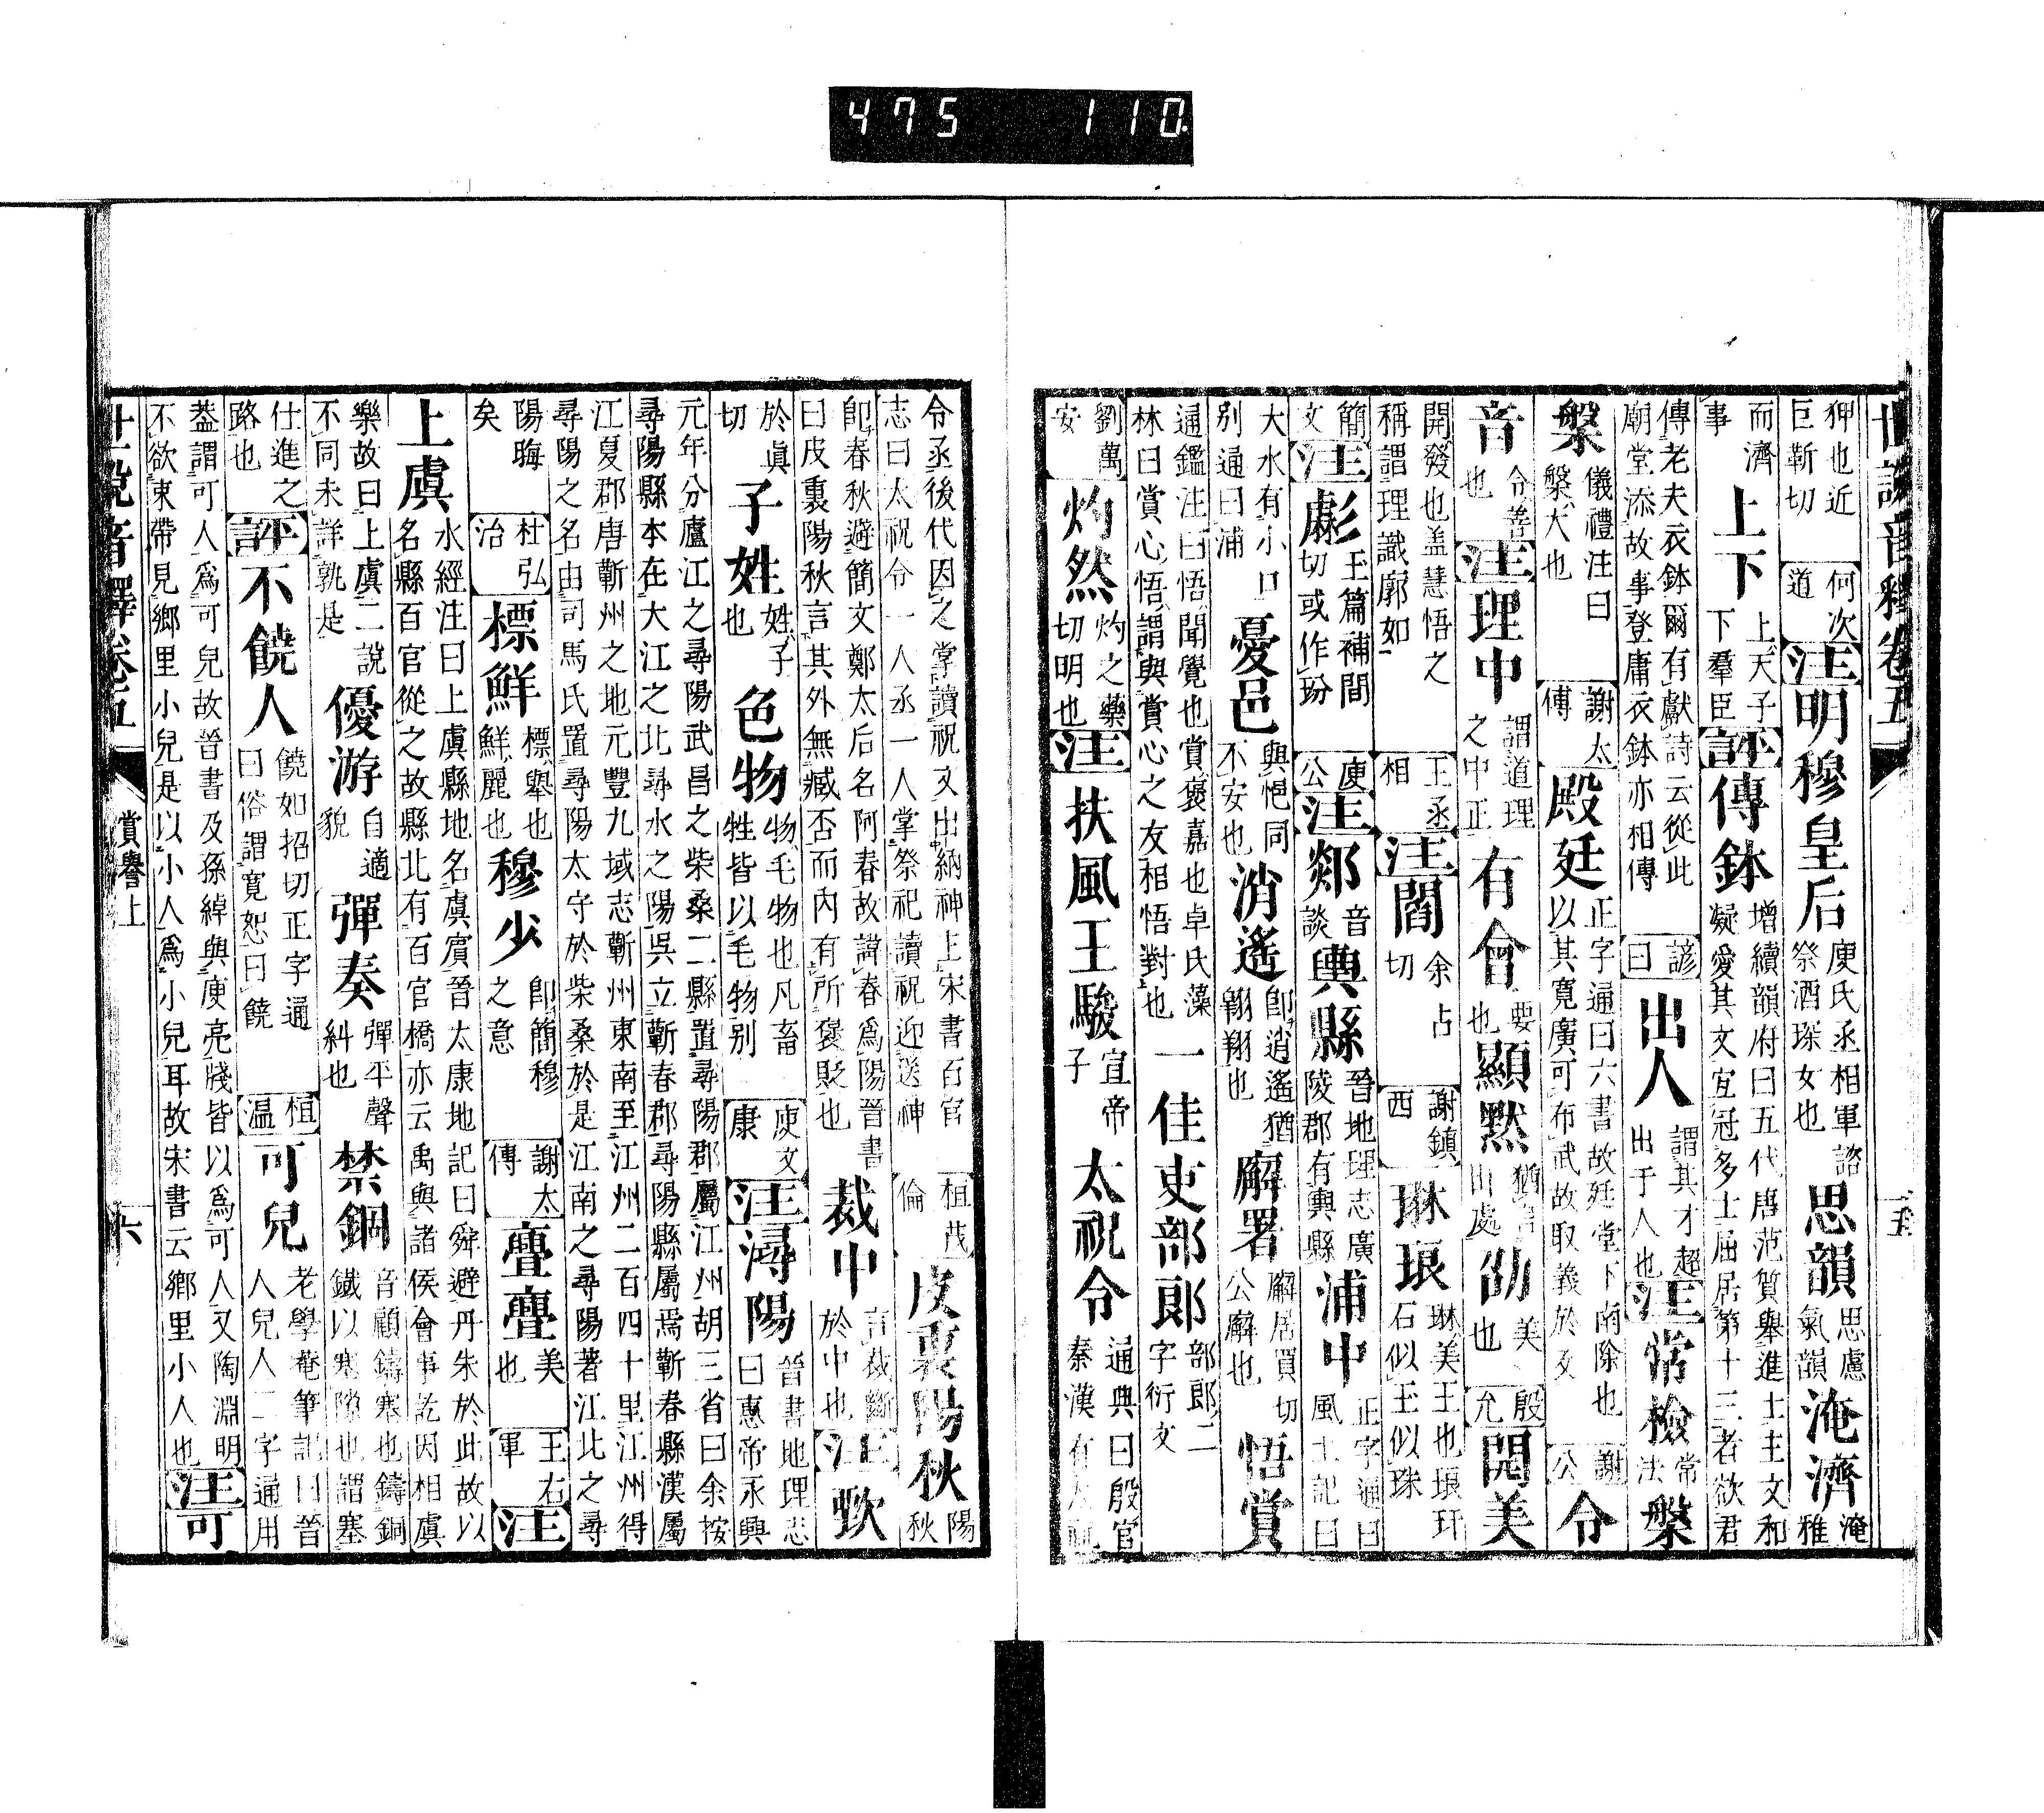 475 110
世說音釋卷五
狎也近
巨靳切
何次
道
注
明穆皇后
庾氏丞相軍諮
祭酒琛女也
思韻
思慮
氣韻
淹濟
淹雅
而濟
事
上下
上天子
下羣臣
評
傳鉢
增續韻府曰五代唐范質舉進士主文和
凝愛其文宜冠多士屈居第十三者欲君
傳老夫衣鉢爾有獻詩云從此
廟堂添故事登庸衣鉢亦相傳
諺
曰
出人
謂其才超
出于人也
注
常檢
常
法
槃
槃
儀禮注曰
槃大也
謝太
傅
殿廷
正字通曰六書故廷堂下南除也
以其寬廣可布武故取義於廴
謝
公
令
音
令善
也
注
理中
謂道理
之中正
有會
要
也
顯默
猶
出處
劭
美
也
殷
允
開美
開發也蓋慧悟之
稱謂理識廓如
王丞
相
注
閻
余占
切
謝鎮
西
琳琅
琳美玉也琅玕
石似玉似珠
簡
文
注
彪
玉篇補間
切或作玢
庾
公
注
郯
音
談
輿縣
晉地理志廣
陵郡有輿縣
浦中
正字通曰
風土記曰
大水有小口
別通曰浦
憂邑
與悒同
不安也
消遙
卽逍遙猶
翱翔也
廨署
廨居買切
公廨也
悟賞
通鑑注曰悟聞覺也賞褒嘉也卓氏藻
林曰賞心悟謂與賞心之友相悟對也
一佳吏部郎
部郎二
字衍文
劉萬
安
灼然
灼之藥
切明也
注
扶風王駿
宣帝
子
太祝令
通典曰殷官
秦漢有太祝
令丞後代因之掌讀祝文出納神上宋書百官
志曰太祝令一人丞一人掌祭祀讀祝迎送神
桓茂
倫
皮裏陽秋
陽
秋
卽春秋避簡文鄭太后名阿春故諱春爲陽晉書
曰皮裏陽秋言其外無臧否而內有所褒貶也
裁中
言裁斷
於中也
注
歅
於眞
切
子姓
姓子
也
色物
物毛物也凡畜
牲皆以毛物別
庾文
康
注
潯陽
晉書地理志
曰惠帝永興
元年分廬江之尋陽武昌之柴桑二縣置尋陽郡屬江州胡三省曰余按
尋陽縣本在大江之北尋水之陽吳立蘄春郡尋陽縣屬焉蘄春縣漢屬
江夏郡唐蘄州之地元豐九域志蘄州東南至江州二百四十里江州得
尋陽之名由司馬氏置尋陽太守於柴桑於是江南之尋陽著江北之尋
陽晦
矣
杜弘
治
標鮮
標舉也
鮮麗也
穆少
卽簡穆
之意
謝太
傅
亹亹
美
也
王右
軍
注
上虞
水經注曰上虞縣地名虞賓晉太康地記曰舜避丹朱於此故以
名縣百官從之故縣北有百官橋亦云禹與諸侯會事訖因相虞
樂故曰上虞二說
不同未詳孰是
優游
自適
貌
彈奏
彈平聲
糾也
禁錮
音顧鑄塞也鑄銅
鐵以塞隙也謂塞
仕進之
路也
評
不饒人
饒如招切正字通
曰俗謂寬恕曰饒
桓
溫
可兒
老學菴筆記曰晉
人兒人二字通用
蓋謂可人爲可兒故晉書及孫綽與庾亮牋皆以爲可人又陶淵明
不欲束帶見鄉里小兒是以小人爲小兒耳故宋書云鄉里小人也
注
可
世說音釋卷五
賞譽上
六